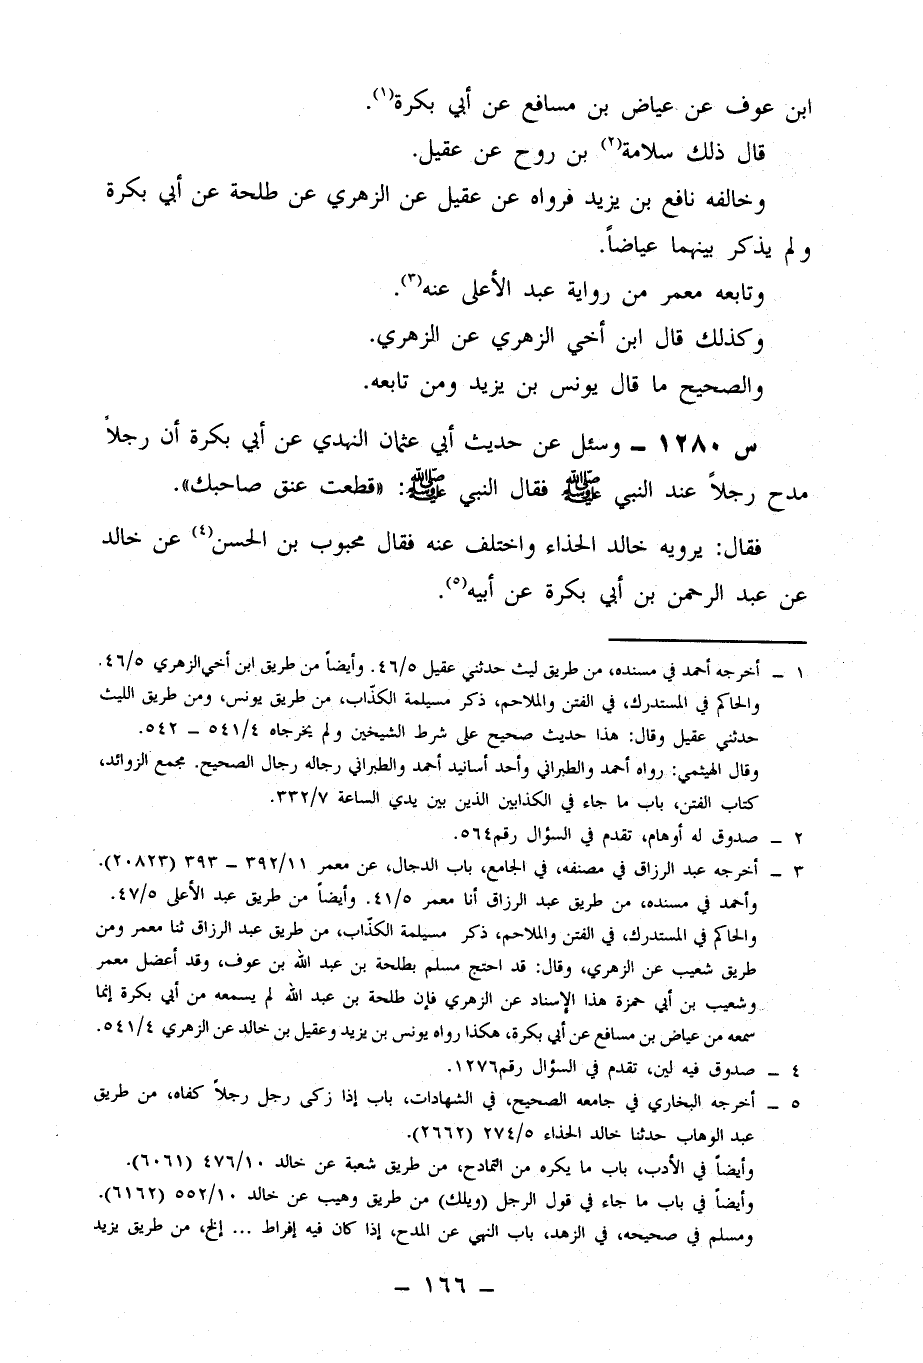 ابن عوف عن عياض بن مسافع عن أبي بكرة(١).
قال ذلك سلامة(٢) بن روح عن عقيل.
وخالفه نافع بن يزيد فرواه عن عقيل عن الزهري عن طلحة عن أبي بكرة
ولم يذكر بينهما عياضاً.
وتابعه معمر من رواية عبد الأعلى عنه(٣).
وكذلك قال ابن أخي الزهري عن الزهري.
والصحيح ما قال يونس بن يزيد ومن تابعه.
س ١٢٨٠ ـ وسئل عن حديث أبي عثمان النهدي عن أبي بكرة أن رجلاً
مدح رجلاً عند النبي ﷺ فقال النبي ﷺ: «قطعت عنق صاحبك».
فقال: يرويه خالد الحذاء واختلف عنه فقال محبوب بن الحسن(٤) عن خالد
عن عبد الرحمن بن أبي بكرة عن أبيه(٥).
١ ـ أخرجه أحمد في مسنده، من طريق ليث حدثني عقيل ٤٦/٥. وأيضاً من طريق ابن أخي الزهري ٤٦/٥.
والحاكم في المستدرك، في الفتن والملاحم، ذكر مسيلمة الكذّاب، من طريق يونس، ومن طريق الليث
حدثني عقيل وقال: هذا حديث صحيح على شرط الشيخين ولم يخرجاه ٥٤١/٤ ـ ٥٤٢.
وقال الهيثمي: رواه أحمد والطبراني وأحد أسانيد أحمد والطبراني رجاله رجال الصحيح. مجمع الزوائد،
كتاب الفتن، باب ما جاء في الكذابين الذين بين يدي الساعة ٣٣٢/٧.
٢ ـ صدوق له أوهام، تقدم في السؤال رقم ٥٦٤.
٣ ـ أخرجه عبد الرزاق في مصنفه، في الجامع، باب الدجال، عن معمر ٣٩٢/١١ ـ ٣٩٣ (٢٠٨٢٣).
وأحمد في مسنده، من طريق عبد الرزاق أنا معمر ٤١/٥. وأيضاً من طريق عبد الأعلى ٤٧/٥.
والحاكم في المستدرك، في الفتن والملاحم، ذكر مسيلمة الكذّاب، من طريق عبد الرزاق ثنا معمر ومن
طريق شعيب عن الزهري، وقال: قد احتج مسلم بطلحة بن عبد الله بن عوف، وقد أعضل معمر
وشعيب بن أبي حمزة هذا الإسناد عن الزهري فإن طلحة بن عبد الله لم يسمعه من أبي بكرة إنما
سمعه من عياض بن مسافع عن أبي بكرة، هكذا رواه يونس بن يزيد وعقيل بن خالد عن الزهري ٥٤١/٤.
٤ ـ صدوق فيه لين، تقدم في السؤال رقم ١٢٧٦.
٥ ـ أخرجه البخاري في جامعه الصحيح، في الشهادات، باب إذا زكى رجل رجلاً كفاه، من طريق
عبد الوهاب حدثنا خالد الحذاء ٢٧٤/٥ (٢٦٦٢).
وأيضاً في الأدب، باب ما يكره من التمادح، من طريق شعبة عن خالد ٤٧٦/١٠ (٦٠٦١).
وأيضاً في باب ما جاء في قول الرجل (ويلك) من طريق وهيب عن خالد ٥٥٢/١٠ (٦١٦٢).
ومسلم في صحيحه، في الزهد، باب النهي عن المدح، إذا كان فيه إفراط ... إلخ، من طريق يزيد
ـ ١٦٦ ـ